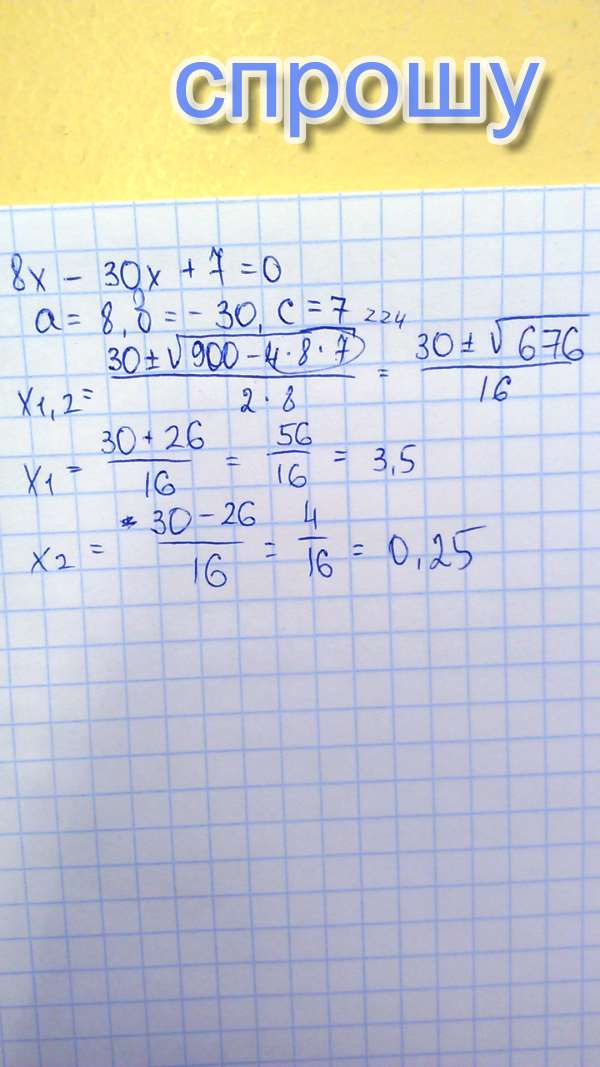 спрошу
8x - 30x + 7 = 0
a = 8, b = - 30, c = 7 224
x1,2 = (30 ± √900 - 4 · 8 · 7) / (2 · 8) = (30 ± √676) / 16
x1 = (30 + 26) / 16 = 56 / 16 = 3,5
x2 = (30 - 26) / 16 = 4 / 16 = 0,25